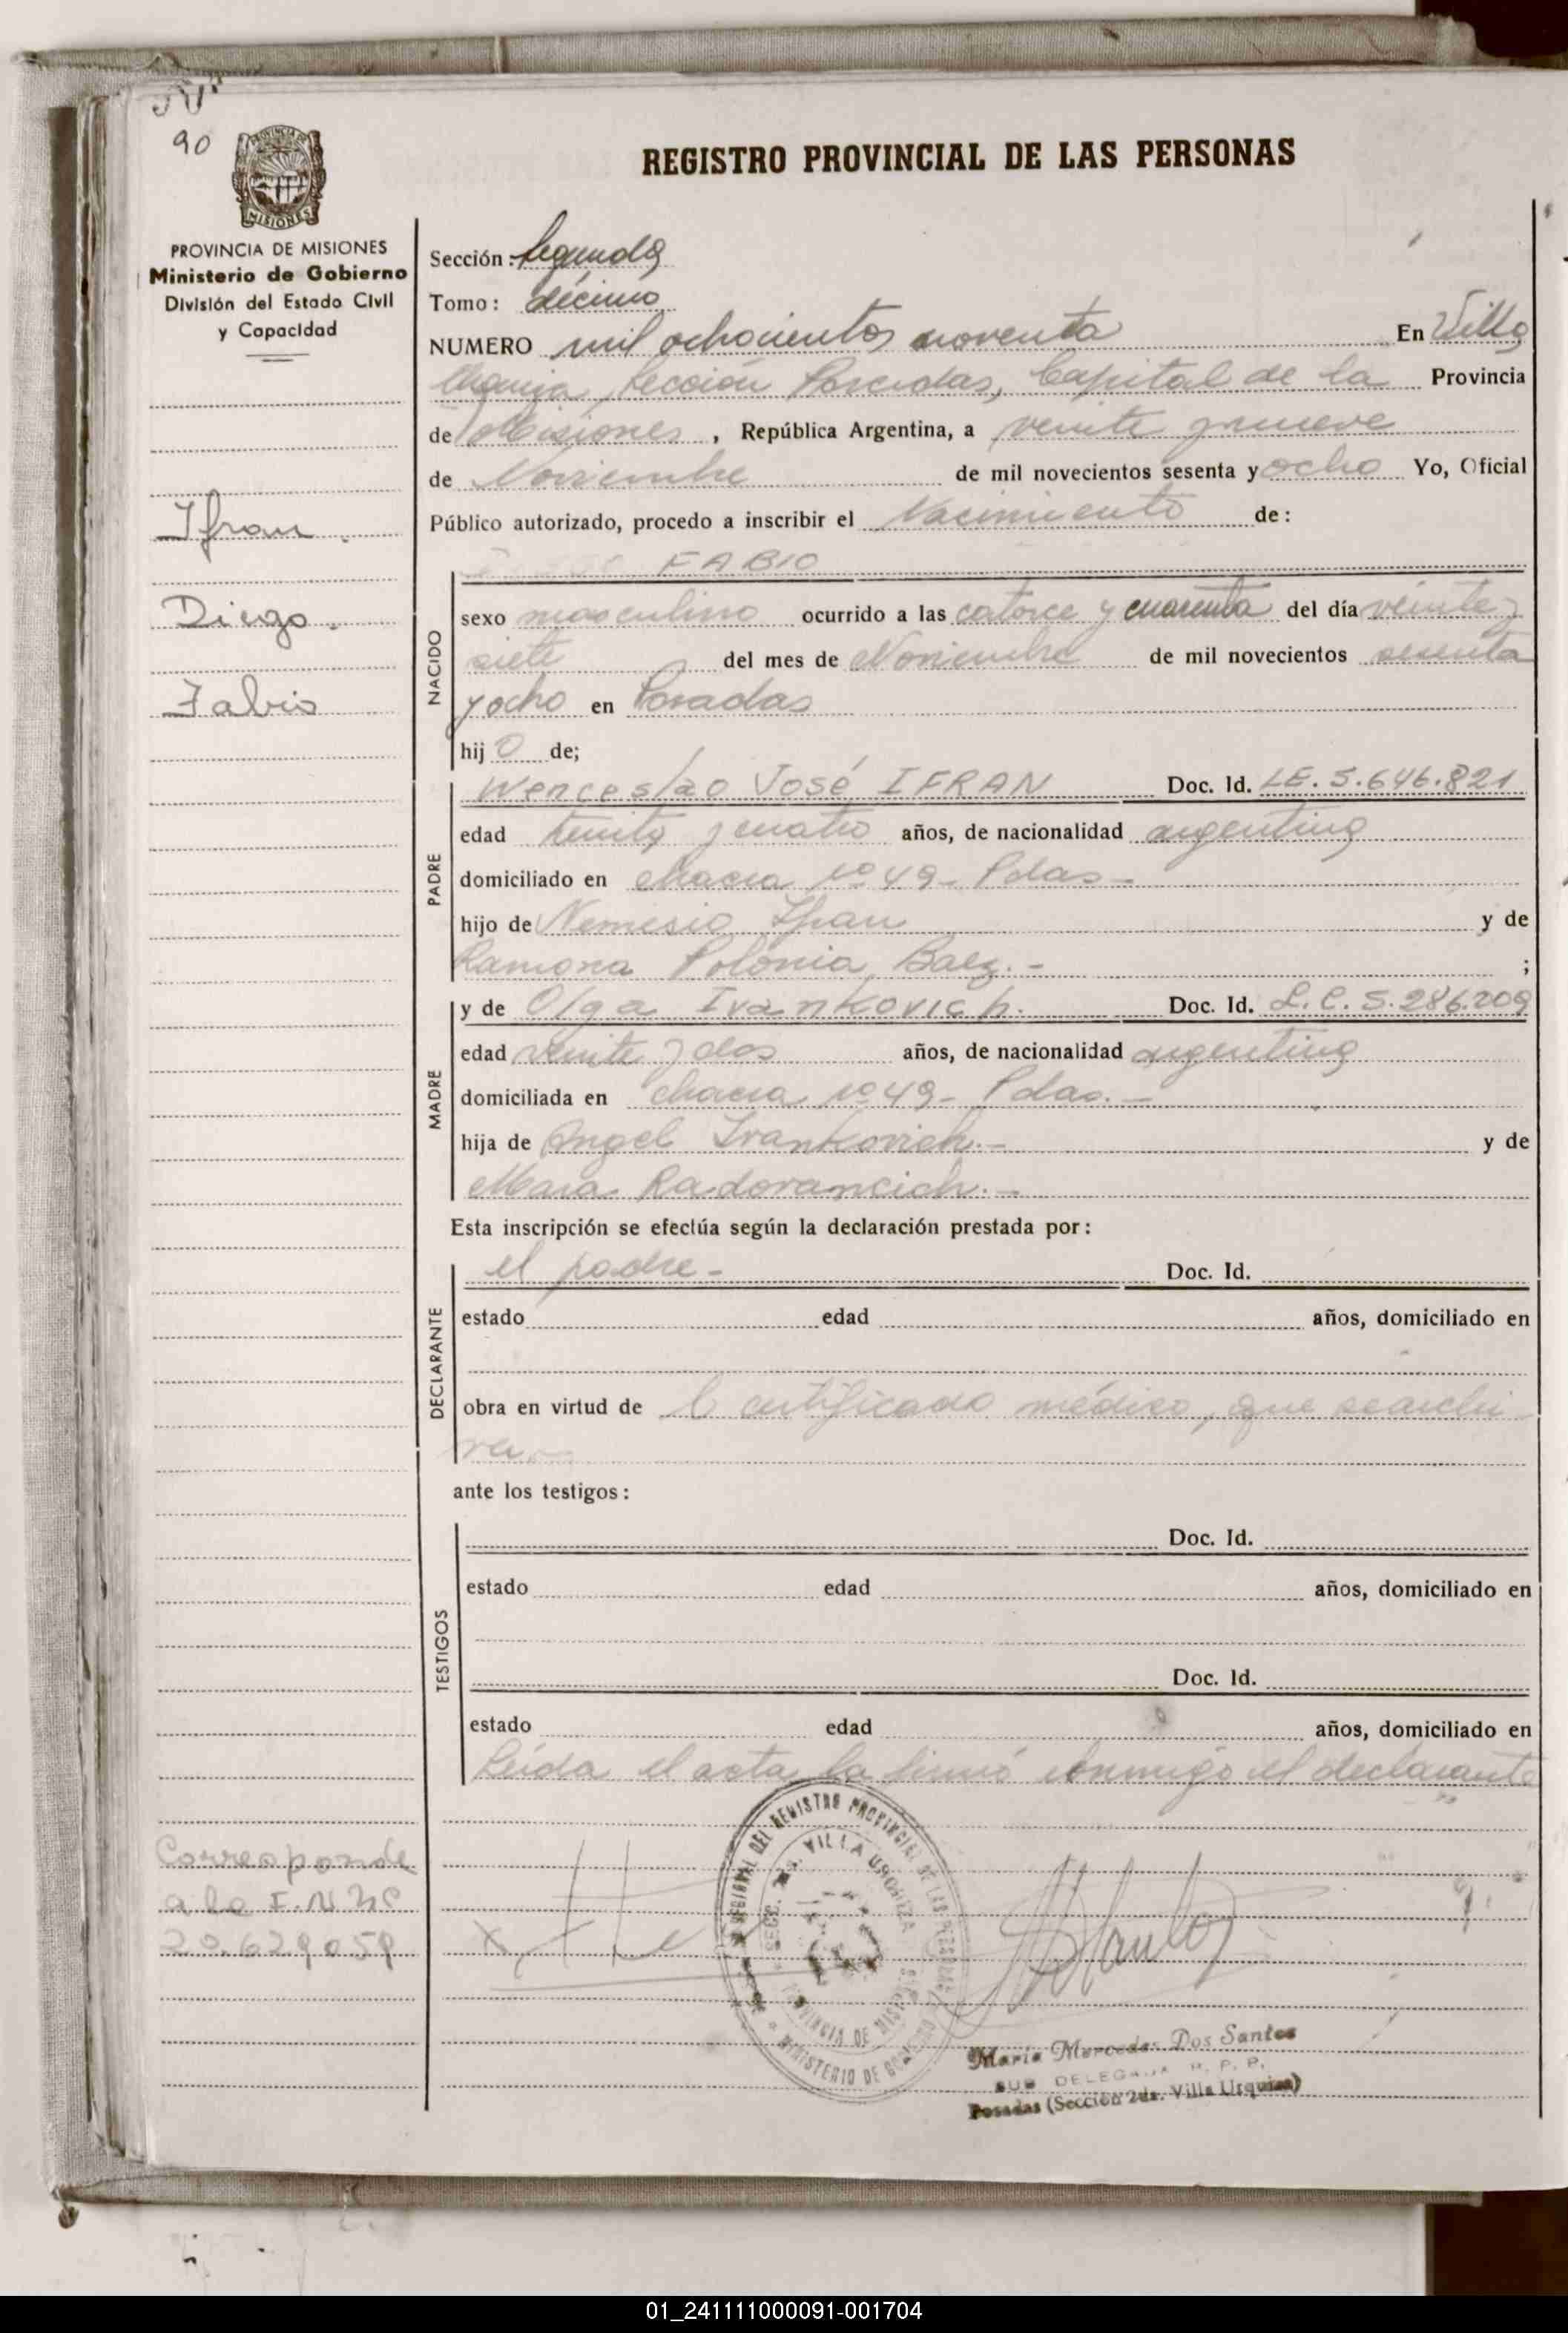 90
PROVINCIA DE MISIONES
Ministerio de Gobierno
División del Estado Civil
y Capacidad
REGISTRO PROVINCIAL DE LAS PERSONAS
Sección: Segunda
Tomo: décimo
NUMERO mil ochocientos noventa En Villa
Urquiza, Sección Posadas, Capital de la Provincia
de Misiones, República Argentina, a veinte y nueve
de Noviembre de mil novecientos sesenta y ocho Yo, Oficial
Público autorizado, procedo a inscribir el Nacimiento de:
Ifran.
Diego.
Fabio
FABIO
NACIDO
sexo masculino ocurrido a las catorce y cuarenta del día veinte y
siete del mes de Noviembre de mil novecientos sesenta
y ocho en Posadas
hij o de;
PADRE
Wenceslao José IFRAN Doc. Id. LE. 5.646.821
edad treinta y cuatro años, de nacionalidad argentina
domiciliado en chacra nº 49 - Pdas -
hijo de Nemesio Ifran y de
Ramona Polonia Baez. - ;
MADRE
y de Olga Ivankovich. Doc. Id. L.C. 5.286.209
edad veinte y dos años, de nacionalidad argentina
domiciliada en chacra nº 49 - Pdas. -
hija de Angel Ivankovich. - y de
Maria Radovancich. -
Esta inscripción se efectúa según la declaración prestada por:
DECLARANTE
el padre - Doc. Id.
estado edad años, domiciliado en
obra en virtud de Certificado médico, que se archi
va.
ante los testigos:
TESTIGOS
Doc. Id.
estado edad años, domiciliado en
Doc. Id.
estado edad años, domiciliado en
Leida el acta la firmó conmigo el declarante
Corresponde
a la
20.629059
VILLA URQUIZA
MINISTERIO DE GOBIERNO
María Mercedes Dos Santos
SUB DELEGADA R. P. P.
Posadas (Sección 2da. Villa Urquiza)
01_241111000091-001704